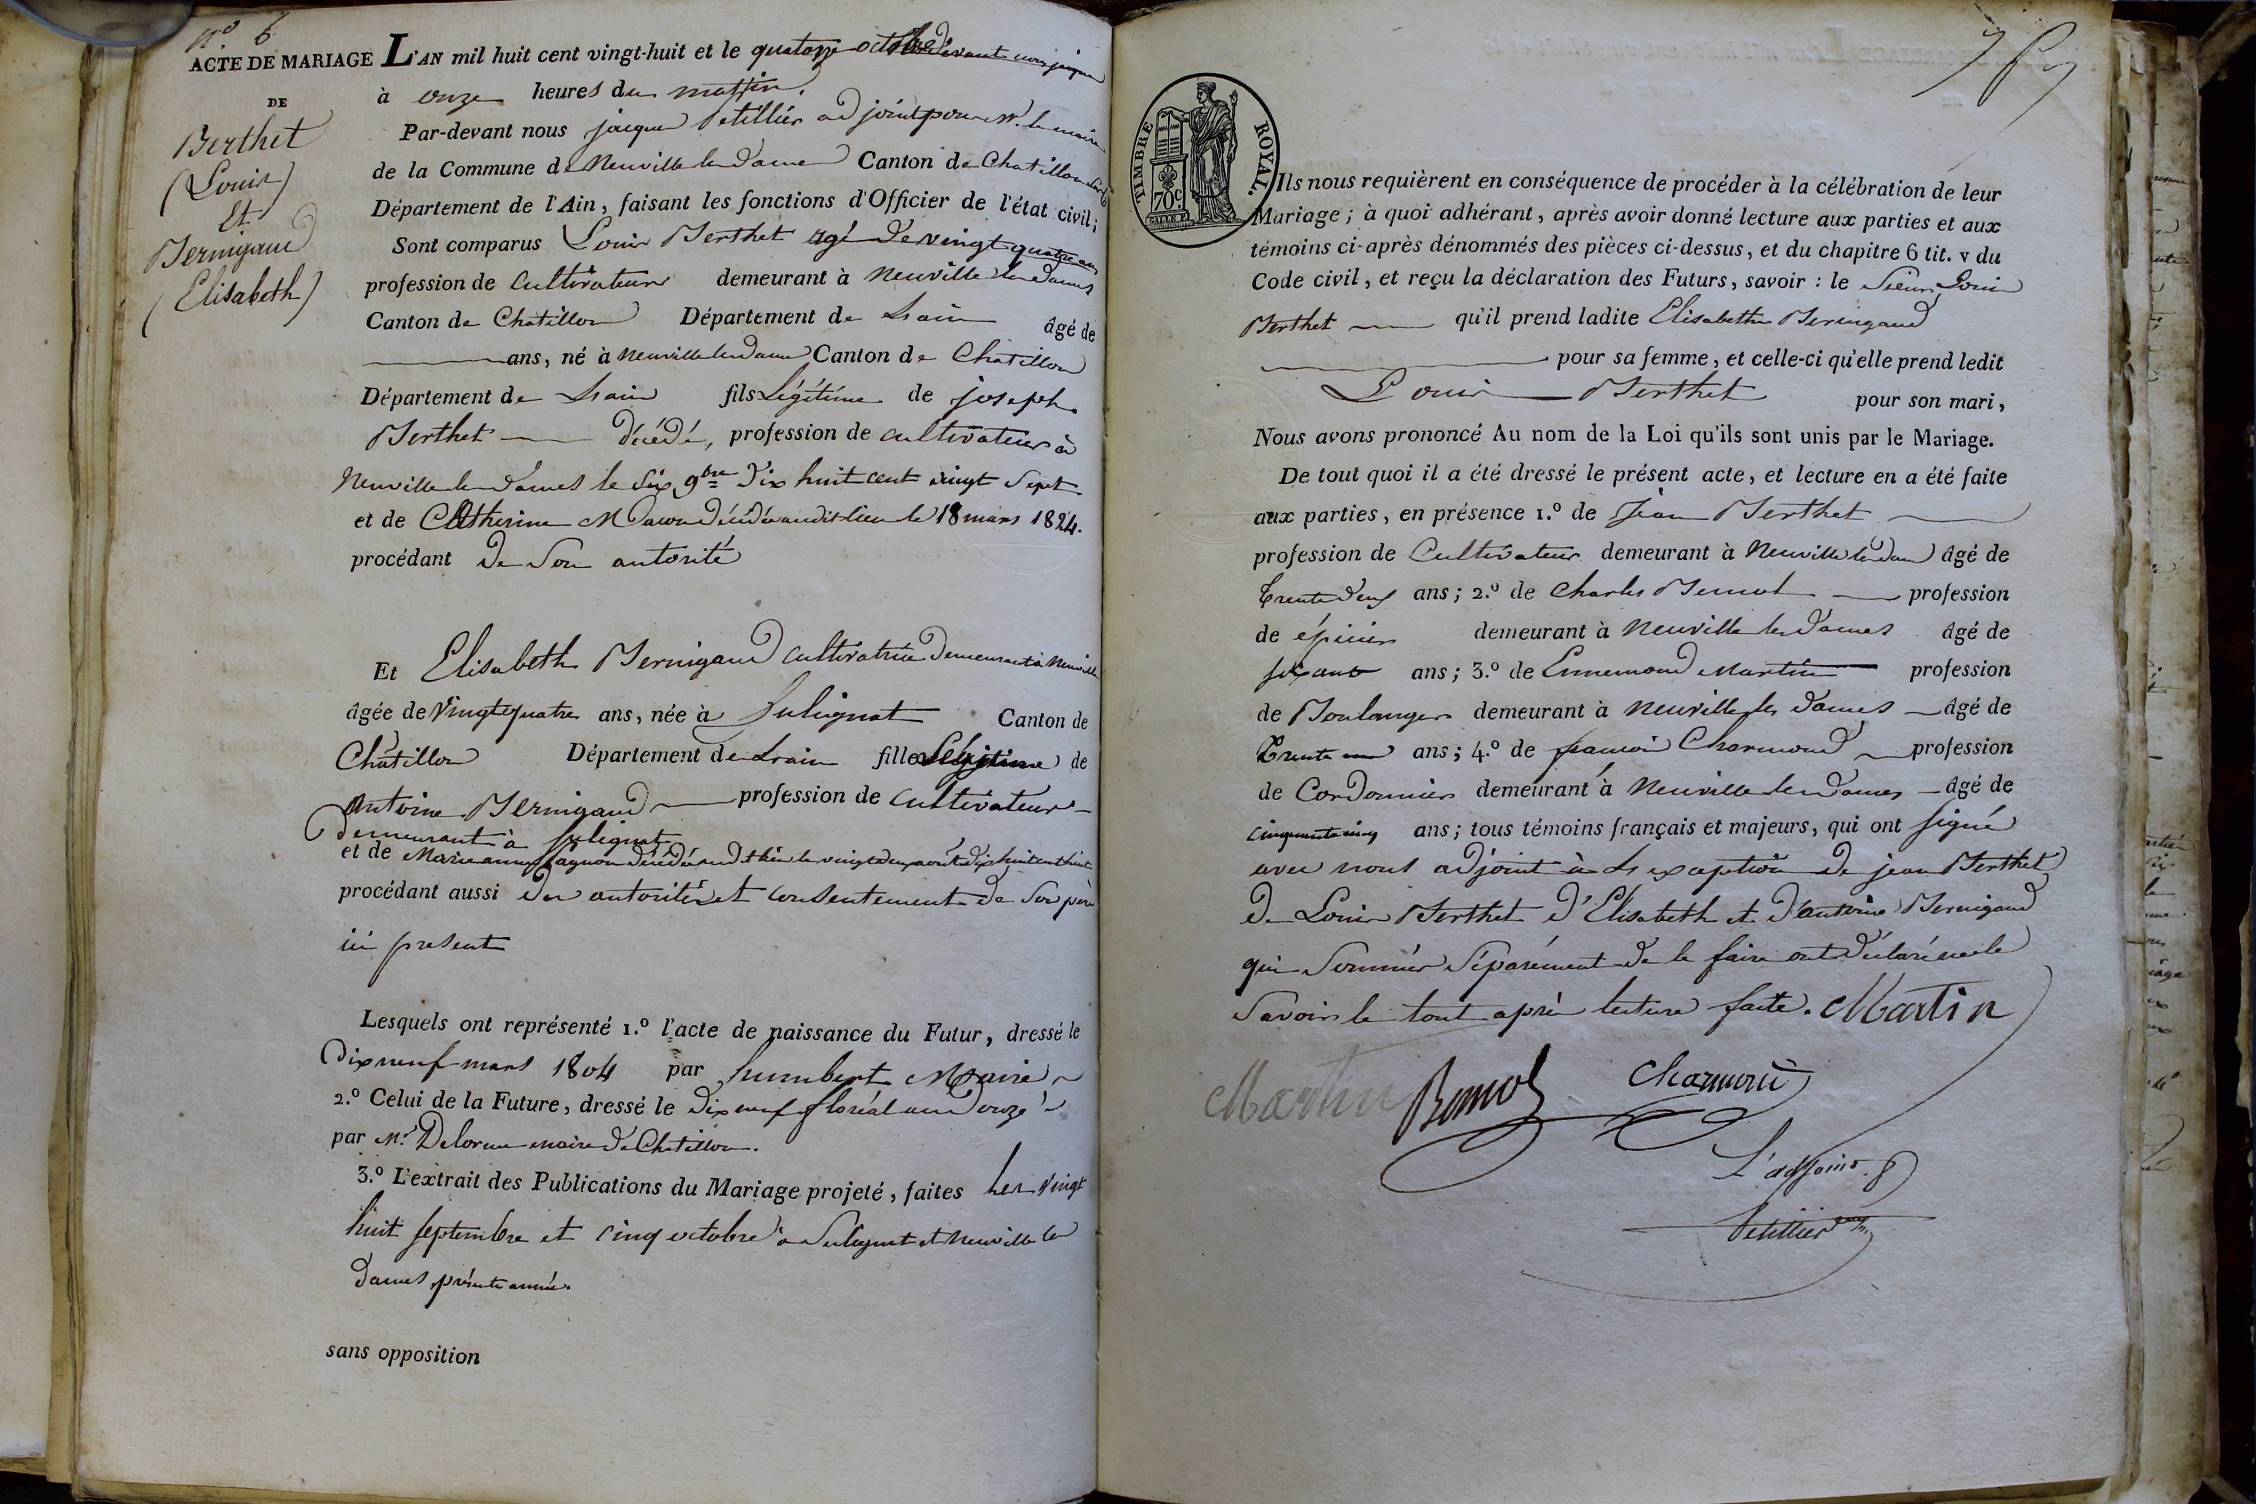 N° 6
ACTE DE MARIAGE
DE
Berthet
(Louis)
Et
Bernigaud
(Elisabeth)
L'AN mil huit cent vingt-huit et le quatorze octobre devant nous jacques
à onze heures du mattin.
Par-devant nous jacques Petillier adjoint pour Mr. le maire
de la Commune de Neuville les Dames Canton de Chatillon
Département de l'Ain, faisant les fonctions d'Officier de l'état civil;
Sont comparus Louis Berthet agé de vingt quatre ans
profession de Cultivateur demeurant à Neuville les Dames
Canton de Chatillon Département de Lain âgé de
ans, né à Neuville les Dames Canton de Chatillon
Département de Lain fils Légitime de joseph
Berthet décédé, profession de cultivateur à
Neuville les Dames le Six 9bre Dix huit cent vingt Sept
et de Catherine décédée audit lieu le 18 mars 1824.
procédant De Son autorité
Et Elisabeth Bernigaud cultivatrice demeurant à Neuville
âgée de Vingt quatre ans, née à Sulignat Canton de
Châtillon Département de Lain fille Légitime de
Antoine Bernigaud profession de Cultivateur
demeurant à Sulignat
et de Marie anne décédée audit lieu le vingt deux août dix huit cent huit
procédant aussi de autorité et consentement de Son père
ici present
Lesquels ont représenté 1.º l'acte de naissance du Futur, dressé le
Dix neuf mars 1804 par humbert Maire
2.º Celui de la Future, dressé le dix neuf floréal an onze
par Mr. Delorme maire de Chatillon.
3.º L'extrait des Publications du Mariage projeté, faites Les vingt
huit septembre et cinq octobre à Sulignat et Neuville les
Dames présente année.
sans opposition
TIMBRE ROYAL.
70c.
Ils nous requièrent en conséquence de procéder à la célébration de leur
Mariage; à quoi adhérant, après avoir donné lecture aux parties et aux
témoins ci-après dénommés des pièces ci-dessus, et du chapitre 6 tit. v du
Code civil, et reçu la déclaration des Futurs, savoir : le Sieur Louis
Berthet qu'il prend ladite Elisabeth Bernigaud
pour sa femme, et celle-ci qu'elle prend ledit
Louis Berthet pour son mari,
Nous avons prononcé Au nom de la Loi qu'ils sont unis par le Mariage.
De tout quoi il a été dressé le présent acte, et lecture en a été faite
aux parties, en présence 1.º de Jean Berthet
profession de Cultivateur demeurant à Neuville les Dames âgé de
Trente deux ans; 2.º de Charles Bernol profession
de épicier demeurant à Neuville les Dames âgé de
soixante ans; 3.º de Ennemond Martin profession
de Boulanger demeurant à Neuville les Dames âgé de
Trente un ans; 4.º de francois Charmond profession
de Cordonnier demeurant à Neuville les Dames âgé de
cinquante cinq ans; tous témoins français et majeurs, qui ont signé
avec nous adjoint à Lexception de jean Berthet
De Louis Berthet d'Elisabeth et d'antoine Bernigaud
qui Sommés Séparément de le faire ont déclaré ne le
Savoir le tout après lecture faite. Martin
Martin Bernol Charmond
L'adjoint
Petillier